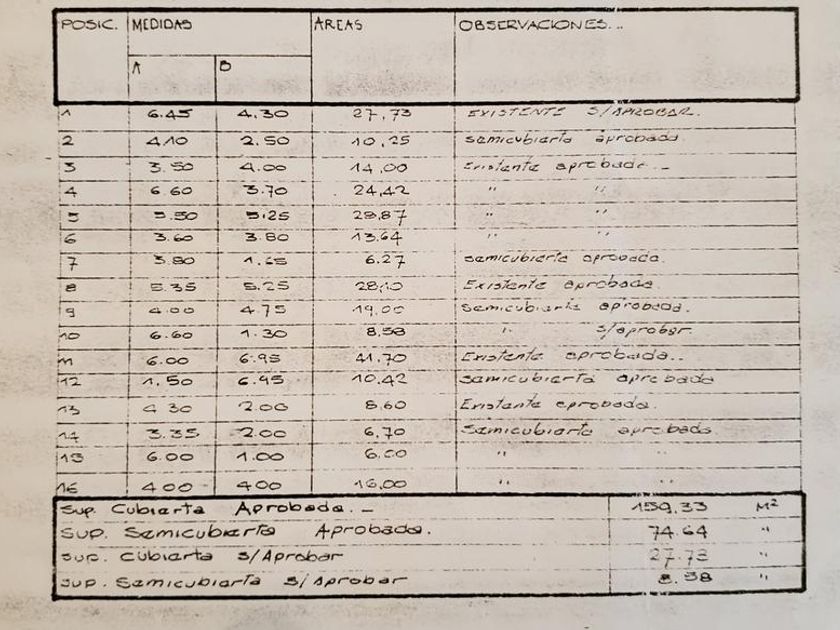 POSIC. MEDIDAS AREAS OBSERVACIONES...
A B
1 6.45 4.30 27,73 EXISTENTE S/APROBAR.
2 4.10 2.50 10,25 semicubierta aprobada.
3 3.50 4.00 14,00 Existente aprobada._
4 6.60 3.70 24,42 " "
5 5.50 5.25 28,87 " "
6 3.60 3.80 13,64 " "
7 3.80 1.65 6.27 semicubierta aprobada.
8 5.35 5.25 28,10 Existente aprobada.
9 4.00 4.75 19,00 Semicubierta aprobada.
10 6.60 1.30 8,58 " s/aprobar
11 6.00 6.95 41,70 Existente aprobada..
12 1.50 6.95 10,42 semicubierta aprobada
13 4 30 2.00 8,60 Existente aprobada.
14 3.35 2.00 6,70 Semicubierta aprobada
15 6.00 1.00 6,00 " "
16 4 00 4 00 16,00
Sup. Cubierta Aprobada._ 159,33 M²
Sup. Semicubierta Aprobada. 74.64 "
Sup. Cubierta s/Aprobar 27.73 "
Sup. Semicubierta s/Aprobar 8.58 "